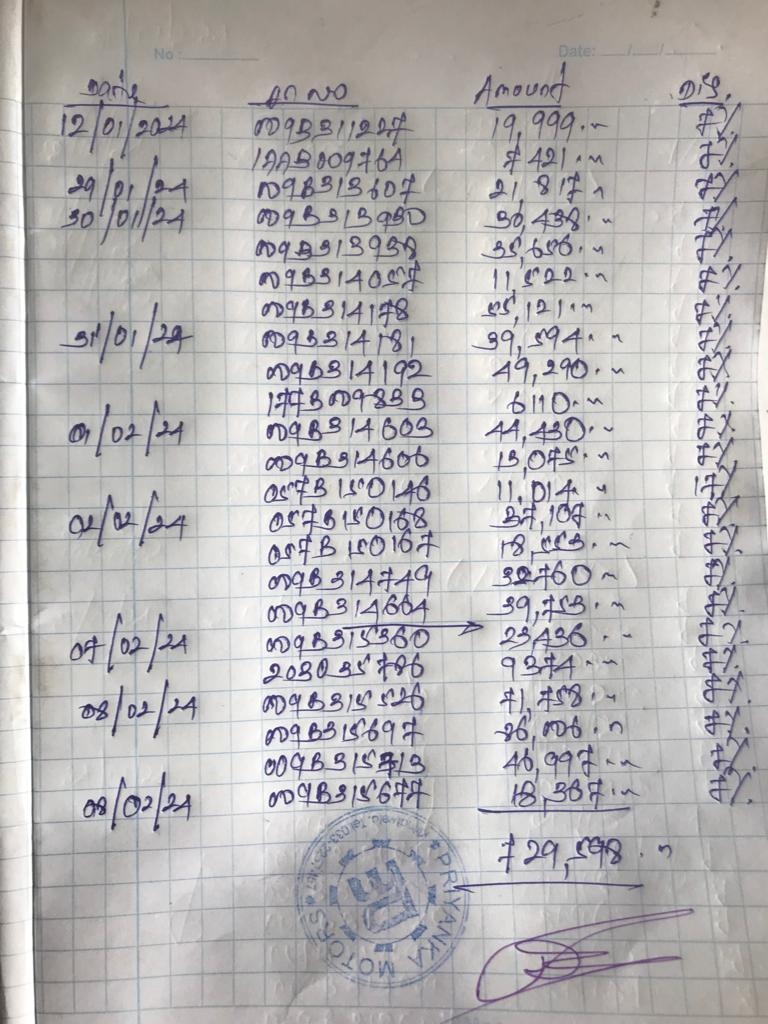 No : Date: / /
Date Amount Dis.
12/01/2024 009B311227 19,999.~ 7%
1AAB009764 7421.~ 7%
29/01/24 009B313607 21,817~ 7%
30/01/24 009B313930 30,438.~ 7%
009B313938 35,656.~ 7%
009B314057 11,522.~ 7%
009B314178 55,121.~ 7%
31/01/24 009B314181 39,594.~ 7%
009B314192 49,290.~ 7%
177B009833 6110.~ 7%
01/02/24 009B314603 44,430.~ 7%
009B314606 13,075.~ 7%
057B150146 11,014.~ 7%
02/02/24 057B150168 37,107~ 7%
057B150167 18,553.~ 7%
009B314749 32760~ 7%
009B314604 39,753.~ 7%
07/02/24 009B315360 23,436.~ 7%
203035786 9374.~ 7%
08/02/24 009B315526 71,758.~ 7%
009B315697 7%
009B315713 46,997.~ 7%
08/02/24 009B315677 18,367.~ 7%
729,598.~
PRIYANKA MOTORS